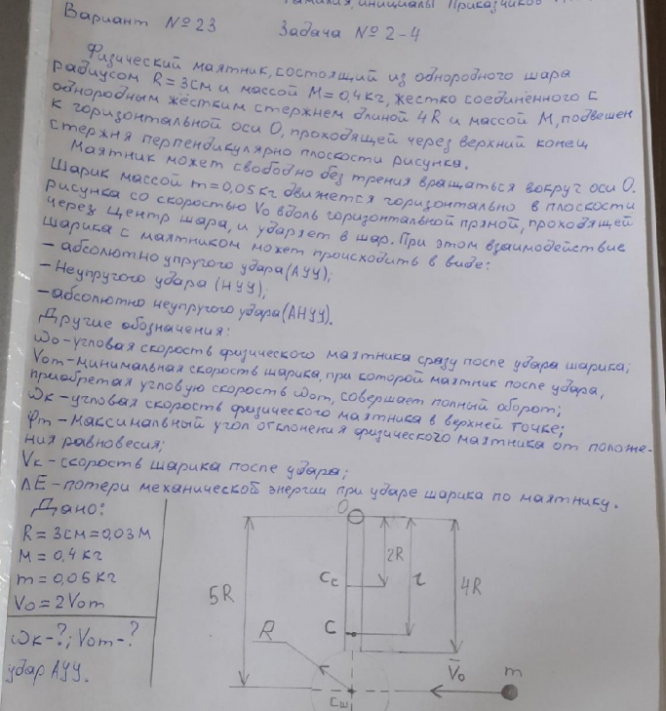 Фамилия, инициалы Приказчиков
Вариант №23 Задача №2-4
Физический маятник, состоящий из однородного шара
радиусом R=3см и массой M=0,4кг, жестко соединённого с
однородным жёстким стержнем длиной 4R и массой M, подвешен
к горизонтальной оси О, проходящей через верхний конец
стержня перпендикулярно плоскости рисунка.
Маятник может свободно без трения вращаться вокруг оси О.
Шарик массой m=0,05кг движется горизонтально в плоскости
рисунка со скоростью V₀ вдоль горизонтальной прямой, проходящей
через центр шара, и ударяет в шар. При этом взаимодействие
шарика с маятником может происходить в виде:
– абсолютно упругого удара (АУУ);
– Неупругого удара (НУУ);
– абсолютно неупругого удара (АНУУ).
Другие обозначения:
ω₀ - угловая скорость физического маятника сразу после удара шарика;
V₀m - минимальная скорость шарика, при которой маятник после удара,
приобретая угловую скорость ω₀m, совершает полный оборот;
ωк - угловая скорость физического маятника в верхней точке;
φm - максимальный угол отклонения физического маятника от положе-
ния равновесия;
Vк - скорость шарика после удара;
ΔE - потери механической энергии при ударе шарика по маятнику.
Дано:
R = 3см = 0,03м
M = 0,4кг
m = 0,05кг
V₀ = 2V₀m
ωк-?; V₀m-?
удар АУУ.
O
2R
Cc
l
4R
5R
C
R
V₀
m
Cш